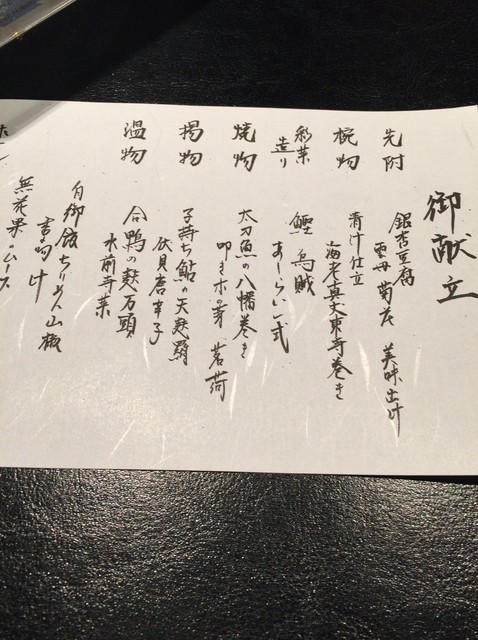 御献立
先附
銀杏豆腐
雲丹 菊花 美味出汁
椀物
清汁仕立
海老真丈東寺巻き
造り
鰹 烏賊
あしらい一式
焼物
太刀魚の八幡巻き
叩き木の芽 茗荷
揚物
子持ち鮎の天麩羅
伏見唐辛子
温物
合鴨の麩万頭
水前寺菜
白御飯 ちりめん山椒
吉野汁
無花果のムース